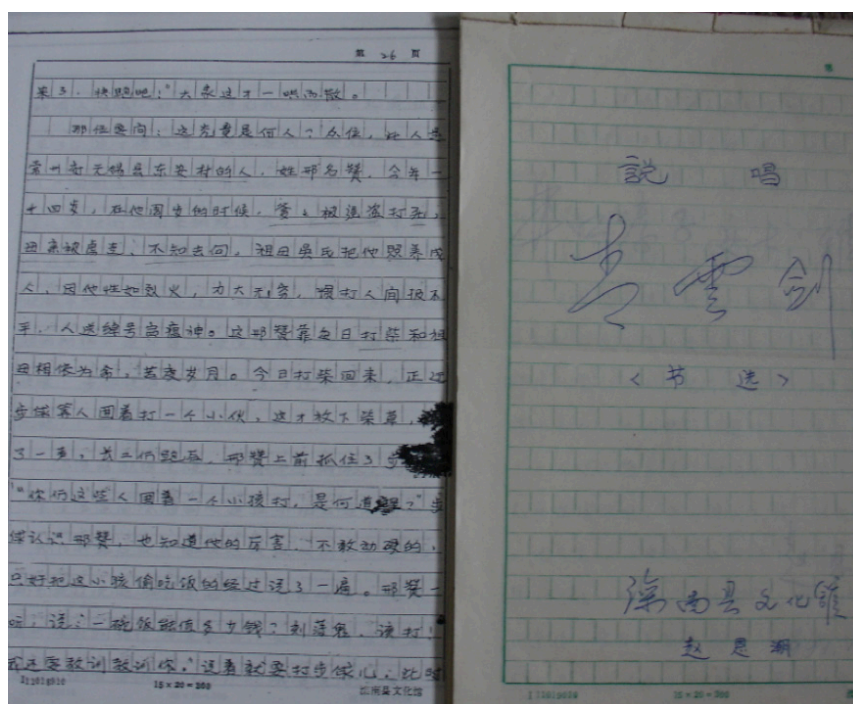 第 26 页
来了，快跑吧！”大家这才一哄而散。
那位要问：这究竟是何人？众位，此人是
常州府无锡县东安村的人，姓邢名赞，今年一
十四岁，在他周岁的时候，爹爹被强盗打死，
母亲被虏走，不知去向，祖母吴氏把他照养成
人，因他性如烈火，力大无穷，惯打人间抱不
平，人送绰号当瘟神。这邢赞靠每日打柴和祖
母相依为命，苦度岁月。今日打柴回来，正迂
人围着打一个小伙，这才放下柴草，
了一声，
邢赞上前抓住了
“你们这些人围着一个小孩打，是何道理？”
认识邢赞，也知道他的厉害，不敢动硬的，
只好把这小孩偷吃饭的经过说了一遍。邢赞一
听，说：一碗饭能值多少钱？
该打！
我还要教训教训你。”说着就要打
此时
15×20=300
说 唱
青云剑
＜节 选＞
滦南县文化馆
赵恩潮
15×20=300